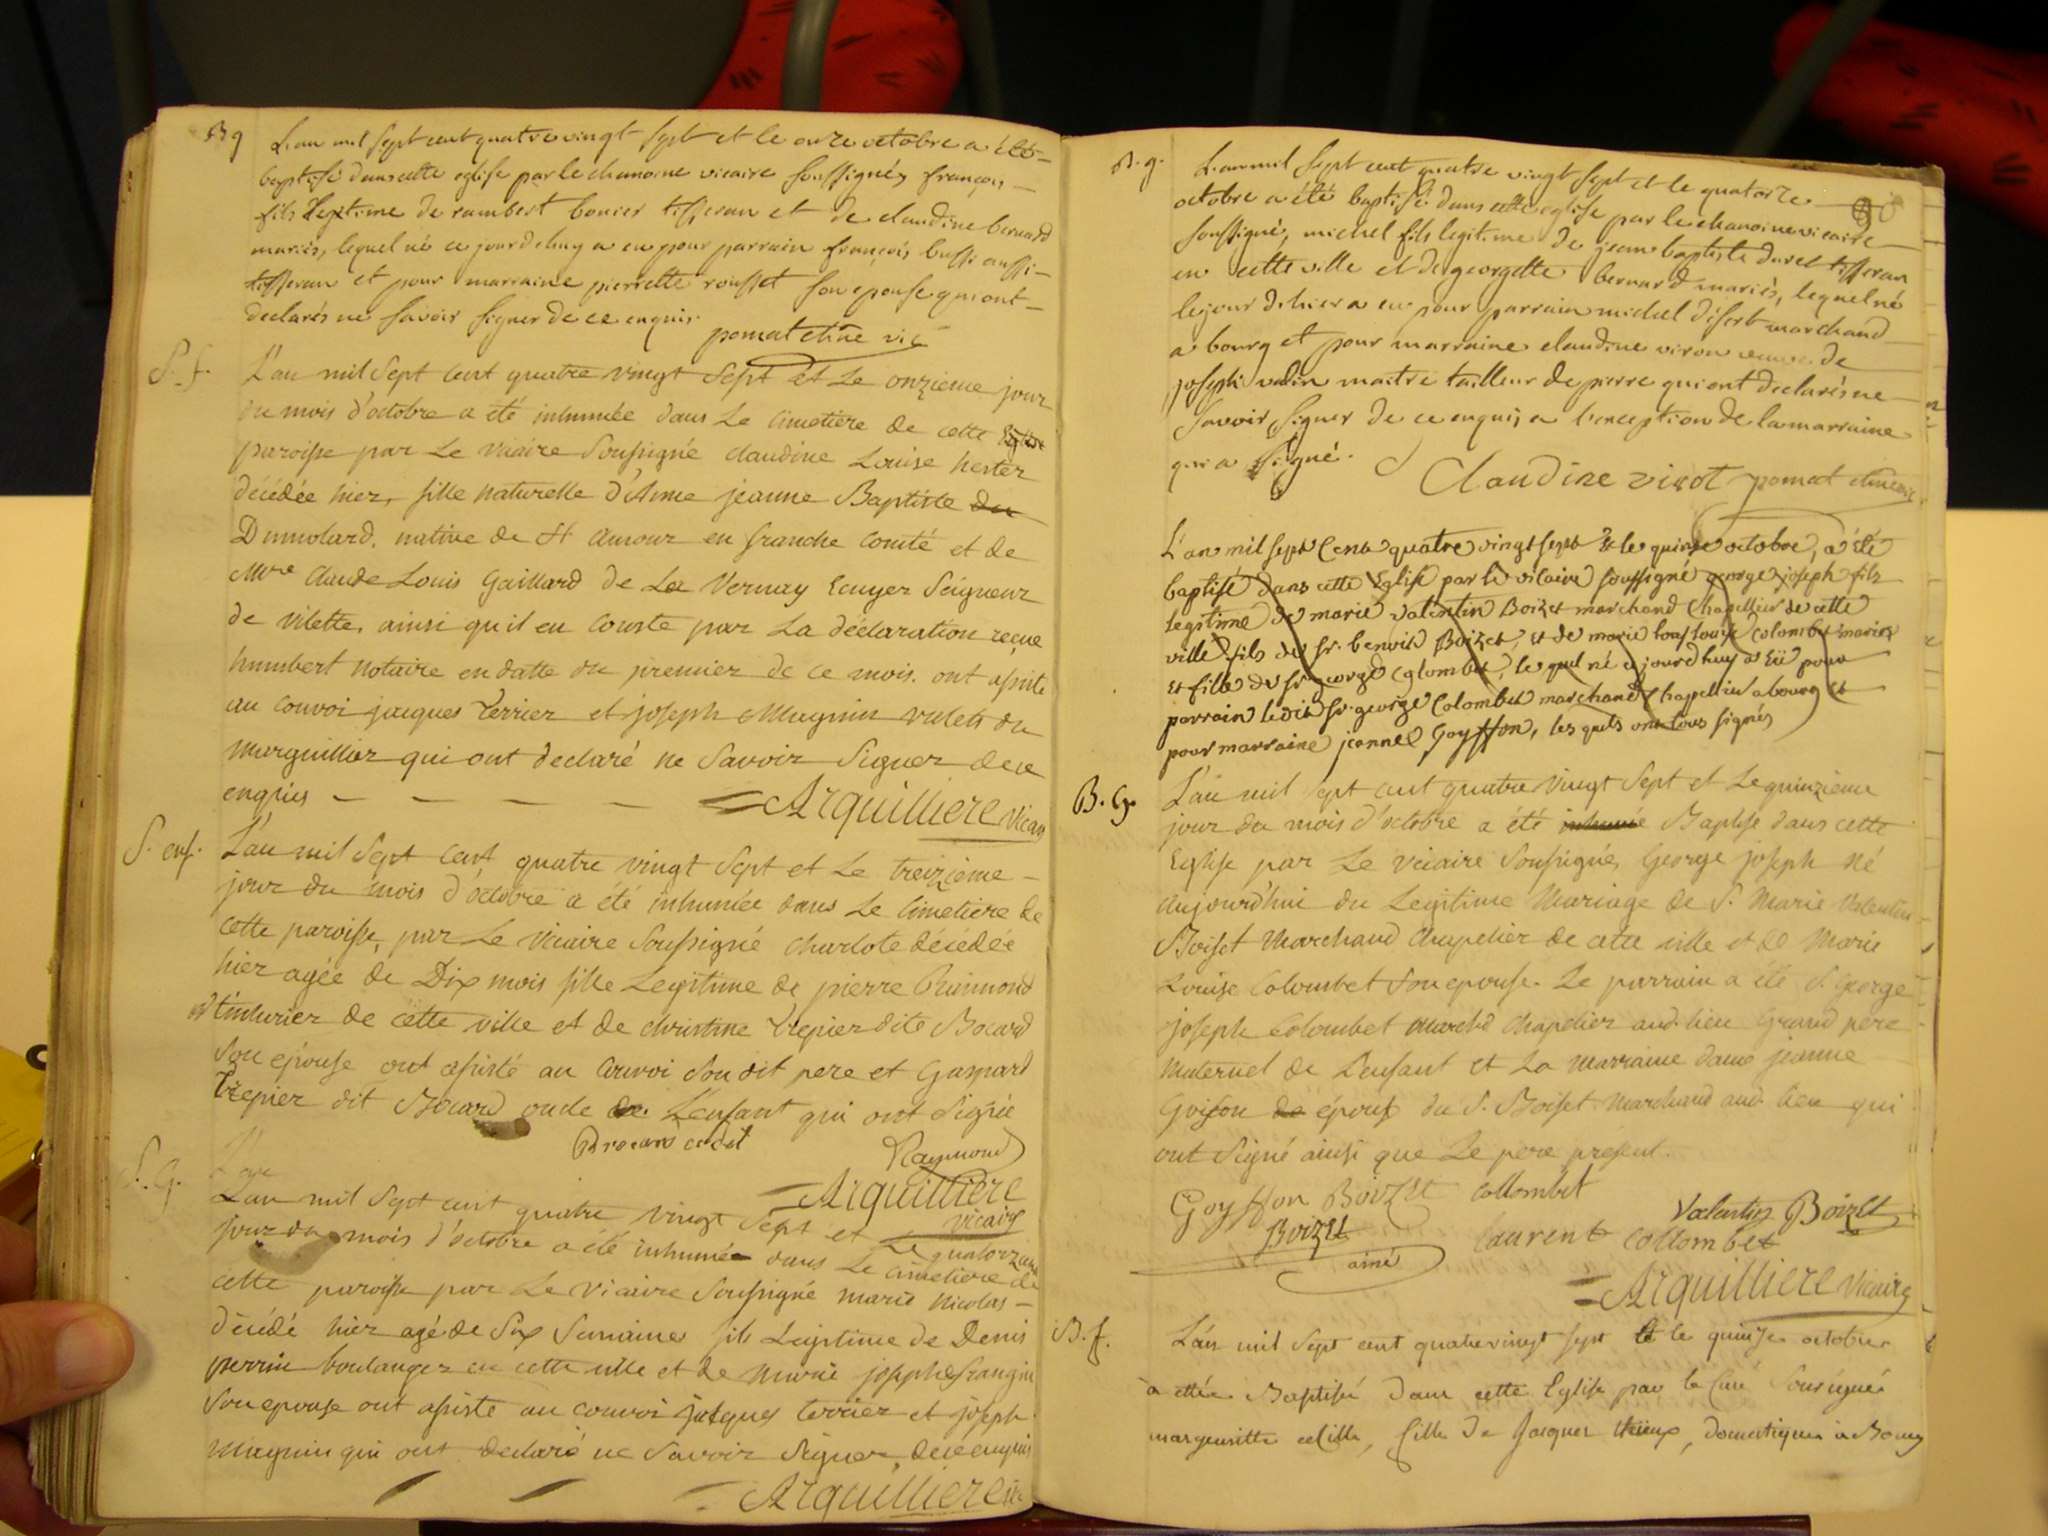 B g
L'an mil sept cent quatre vingt sept et le onze octobre a été
baptisé dans cette eglise par le chanoine vicaire soussigné, françois
fils legitime de rambert bonier tisseran et de claudine bernard
mariés, lequel né ce jourdehuy a eu pour parrain françois bussi aussi
tisseran et pour marraine pierrette rousset son epouse qui ont
declarés ne savoir signer de ce enquis
pomat chne vic
S. f.
L'an mil Sept cent quatre vingt Sept et Le onzieme jour
du mois d'octobre a été inhumée dans Le Cimetiere de cette
paroisse par Le Vicaire Soussigné claudine Louise hester
décédée hier, fille naturelle d'Anne jeanne Baptiste du
Dumolard, native de St Amour en franche Comté et de
Mre Claude Louis Gaillard de La Vernay Ecuyer Seigneur
de vilette, ainsi quil en Conste par La déclaration reçue
humbert notaire en datte du premier de ce mois. ont assisté
au Convoi jacques Terrier et joseph Mugnin valets du
Marguillier qui ont declaré ne Savoir Signer de ce
enquies
Arquilliere Vicaire
S. enf.
L'an mil Sept Cent quatre vingt Sept et Le treizieme
jour du mois d'octobre a été inhumée dans Le Cimetiere de
cette paroisse, par Le Vicaire Soussigné charlote décédée
hier agée de Dix mois fille Legitime de pierre
teinturier de cette ville et de christine Trepier dite Bocard
Son epouse ont assisté au Convoi Son dit pere et Gaspard
Trepier dit Bocard oncle de L'enfant qui ont Signé
Raymond
Arquilliere
vicaire
S. G.
L'an
L'an mil Sept cent quatre vingt Sept et Le quatorzieme
jour du mois d'octobre a été inhumée dans Le Cimetiere de
cette paroisse par Le Vicaire Soussigné marie Nicolas
décédé hier agé de Six Semaines fils Legitime de Denis
perrin boulanger en cette ville et de Marie josephe frangin
Son epouse ont assisté au convoi jacques terrier et joseph
Mugnin qui ont declaré ne Savoir Signer de ce enquis
Arquilliere vic
B. g.
L'an mil sept cent quatre vingt sept et le quatorze
octobre a été baptisé dans cette eglise par le chanoine vicaire
soussigné, michel fils legitime de jean baptiste duret tisseran
en cette ville et de georgette bernard mariés, lequel né
le jour d'hier a eu pour parrain michel disert marchand
a bourg et pour marraine claudine viron veuve de
joseph vulin maitre tailleur de pierre qui ont declarés ne
savoir signer de ce enquis, a l'exception de la marraine
qui a signé.
Claudine virot pomat chne vic
L'an mil sept Cent quatre vingt sept & le quinze octobre, a été
baptisé dans cette Eglise par le vicaire soussigné george joseph fils
legitime de marie valentin Boizet marchand Chapellier de cette
ville fils de Sr. benoit Boizet, et de marie louise Colombet mariés
et fille de Sr. george Colombet, le quel né ajourdhuy a Eü pour
parrain ledit Sr. george Colombet marchand Chapellier a bourg et
pour marraine jeanne Goyffon, les quels ont tous signés
B. G.
L'an mil sept cent quatre Vingt Sept et Le quinzieme
jour du mois d'octobre a été inhumé Baptisé dans cette
Eglise par Le Vicaire Soussigné, George joseph né
aujourd'hui du Legitime Mariage de S. Marie Valentin
Boiset Marchand Chapelier de cette ville et de Marie
Louise Colombet Son epouse. Le parrain a été S. George
joseph Colombet March'd Chapelier aud. lieu Grand pere
Maternel de L'enfant et La Marraine dame jeanne
Goifon de épouse du S. Boiset Marchand aud. lieu qui
ont Signé ainsi que Le pere présent.
Goyffon Boizet Collombet
Valentin Boizet
Boizet
ainé
Laurent Collombet
Arquilliere Vicaire
B. f.
L'an mil Sept cent quatrevingt sept et le quinze octobre
a etée Baptisée dans cette Eglise par le Curé Soussigné
marguerite fille de Jacques domestique a Bourg